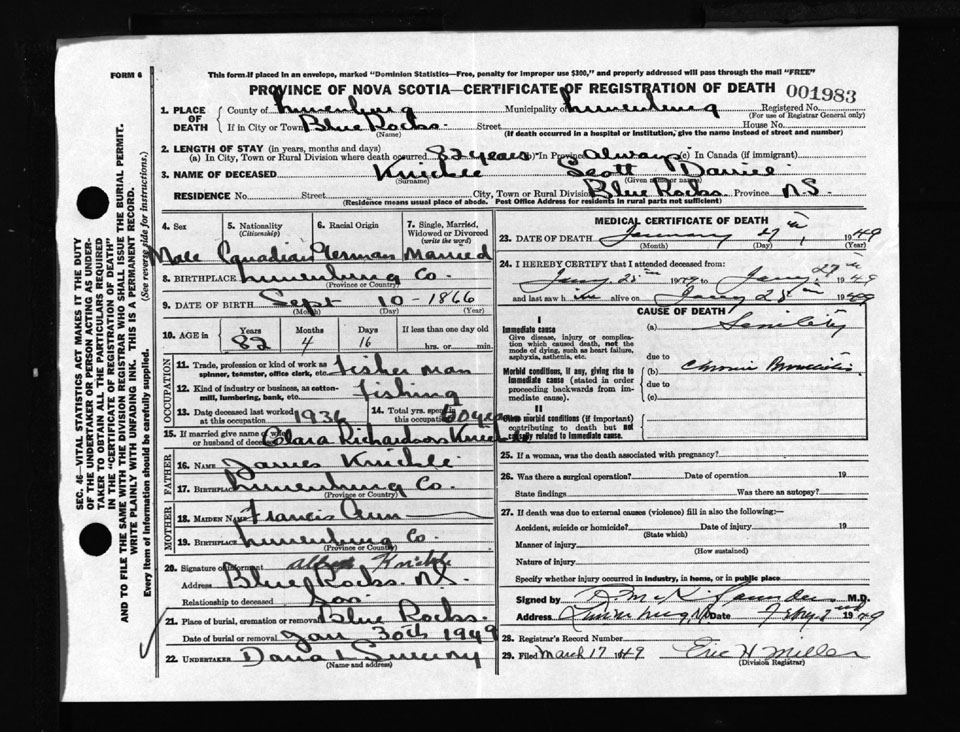 FORM 6
This form if placed in an envelope, marked "Dominion Statistics—Free, penalty for improper use $300," and properly addressed will pass through the mail "FREE"
PROVINCE OF NOVA SCOTIA—CERTIFICATE OF REGISTRATION OF DEATH 001983
1. PLACE OF DEATH County of Lunenburg Municipality of Lunenburg Registered No.
(For use of Registrar General only)
If in City or Town Blue Rocks Street House No.
(Name) (If death occurred in a hospital or institution, give the name instead of street and number)
2. LENGTH OF STAY (in years, months and days)
(a) In City, Town or Rural Division where death occurred 82 years (b) In Province always (c) In Canada (if immigrant)
3. NAME OF DECEASED Knickle Scott Daniel
(Surname) (Given name or names)
RESIDENCE No. Street City, Town or Rural Division Blue Rocks Province N.S.
(Residence means usual place of abode. Post Office Address for residents in rural parts not sufficient)
4. Sex 5. Nationality (Citizenship) 6. Racial Origin 7. Single, Married, Widowed or Divorced (write the word)
Male Canadian German Married
8. BIRTHPLACE Lunenburg Co.
(Province or Country)
9. DATE OF BIRTH Sept 10 - 1866
(Month) (Day) (Year)
10. AGE in Years Months Days If less than one day old
82 4 16 hrs. or min.
OCCUPATION
11. Trade, profession or kind of work as spinner, teamster, office clerk, etc. Fisherman
12. Kind of industry or business, as cotton-mill, lumbering, bank, etc. fishing
13. Date deceased last worked at this occupation 1936 14. Total yrs. spent in this occupation 60 years
15. If married give name of wife or husband of deceased Clara Richardson Knickle
FATHER
16. NAME James Knickle
17. BIRTHPLACE Lunenburg Co.
(Province or Country)
MOTHER
18. MAIDEN NAME Francis Ann
19. BIRTHPLACE Lunenburg Co.
(Province or Country)
20. Signature of informant Knickle
Address Blue Rocks N.S.
Relationship to deceased Son
21. Place of burial, cremation or removal Blue Rocks.
Date of burial or removal Jan 30th 1949
22. UNDERTAKER Sweeny
(Name and address)
MEDICAL CERTIFICATE OF DEATH
23. DATE OF DEATH January 27th, 1949
(Month) (Day) (Year)
24. I HEREBY CERTIFY that I attended deceased from:
Jany. 25th 1949 to Jany 27th 1949
and last saw him alive on Jany 25th 1949
CAUSE OF DEATH
I
Immediate cause (a) Senility
Give disease, injury or complication which caused death, not the mode of dying, such as heart failure, asphyxia, asthenia, etc.
due to
Morbid conditions, if any, giving rise to immediate cause (stated in order proceeding backwards from immediate cause). (b) Chronic Bronchitis
due to
(c)
II
Other morbid conditions (if important) contributing to death but not causally related to immediate cause.
25. If a woman, was the death associated with pregnancy?
26. Was there a surgical operation? Date of operation 19
State findings Was there an autopsy?
27. If death was due to external causes (violence) fill in also the following:—
Accident, suicide or homicide? Date of injury 19
(State which)
Manner of injury
(How sustained)
Nature of injury
Specify whether injury occurred in industry, in home, or in public place
Signed by M.D.
Address Lunenburg Date 1949
28. Registrar's Record Number
29. Filed March 17 1949 Eric H Miller
(Division Registrar)
SEC. 46—VITAL STATISTICS ACT MAKES IT THE DUTY
OF THE UNDERTAKER OR PERSON ACTING AS UNDER-
TAKER TO OBTAIN ALL THE PARTICULARS REQUIRED
IN THE "CERTIFICATE OF REGISTRATION OF DEATH"
AND TO FILE THE SAME WITH THE DIVISION REGISTRAR WHO SHALL ISSUE THE BURIAL PERMIT.
WRITE PLAINLY WITH UNFADING INK. THIS IS A PERMANENT RECORD.
Every item of Information should be carefully supplied. (See reverse side for instructions.)